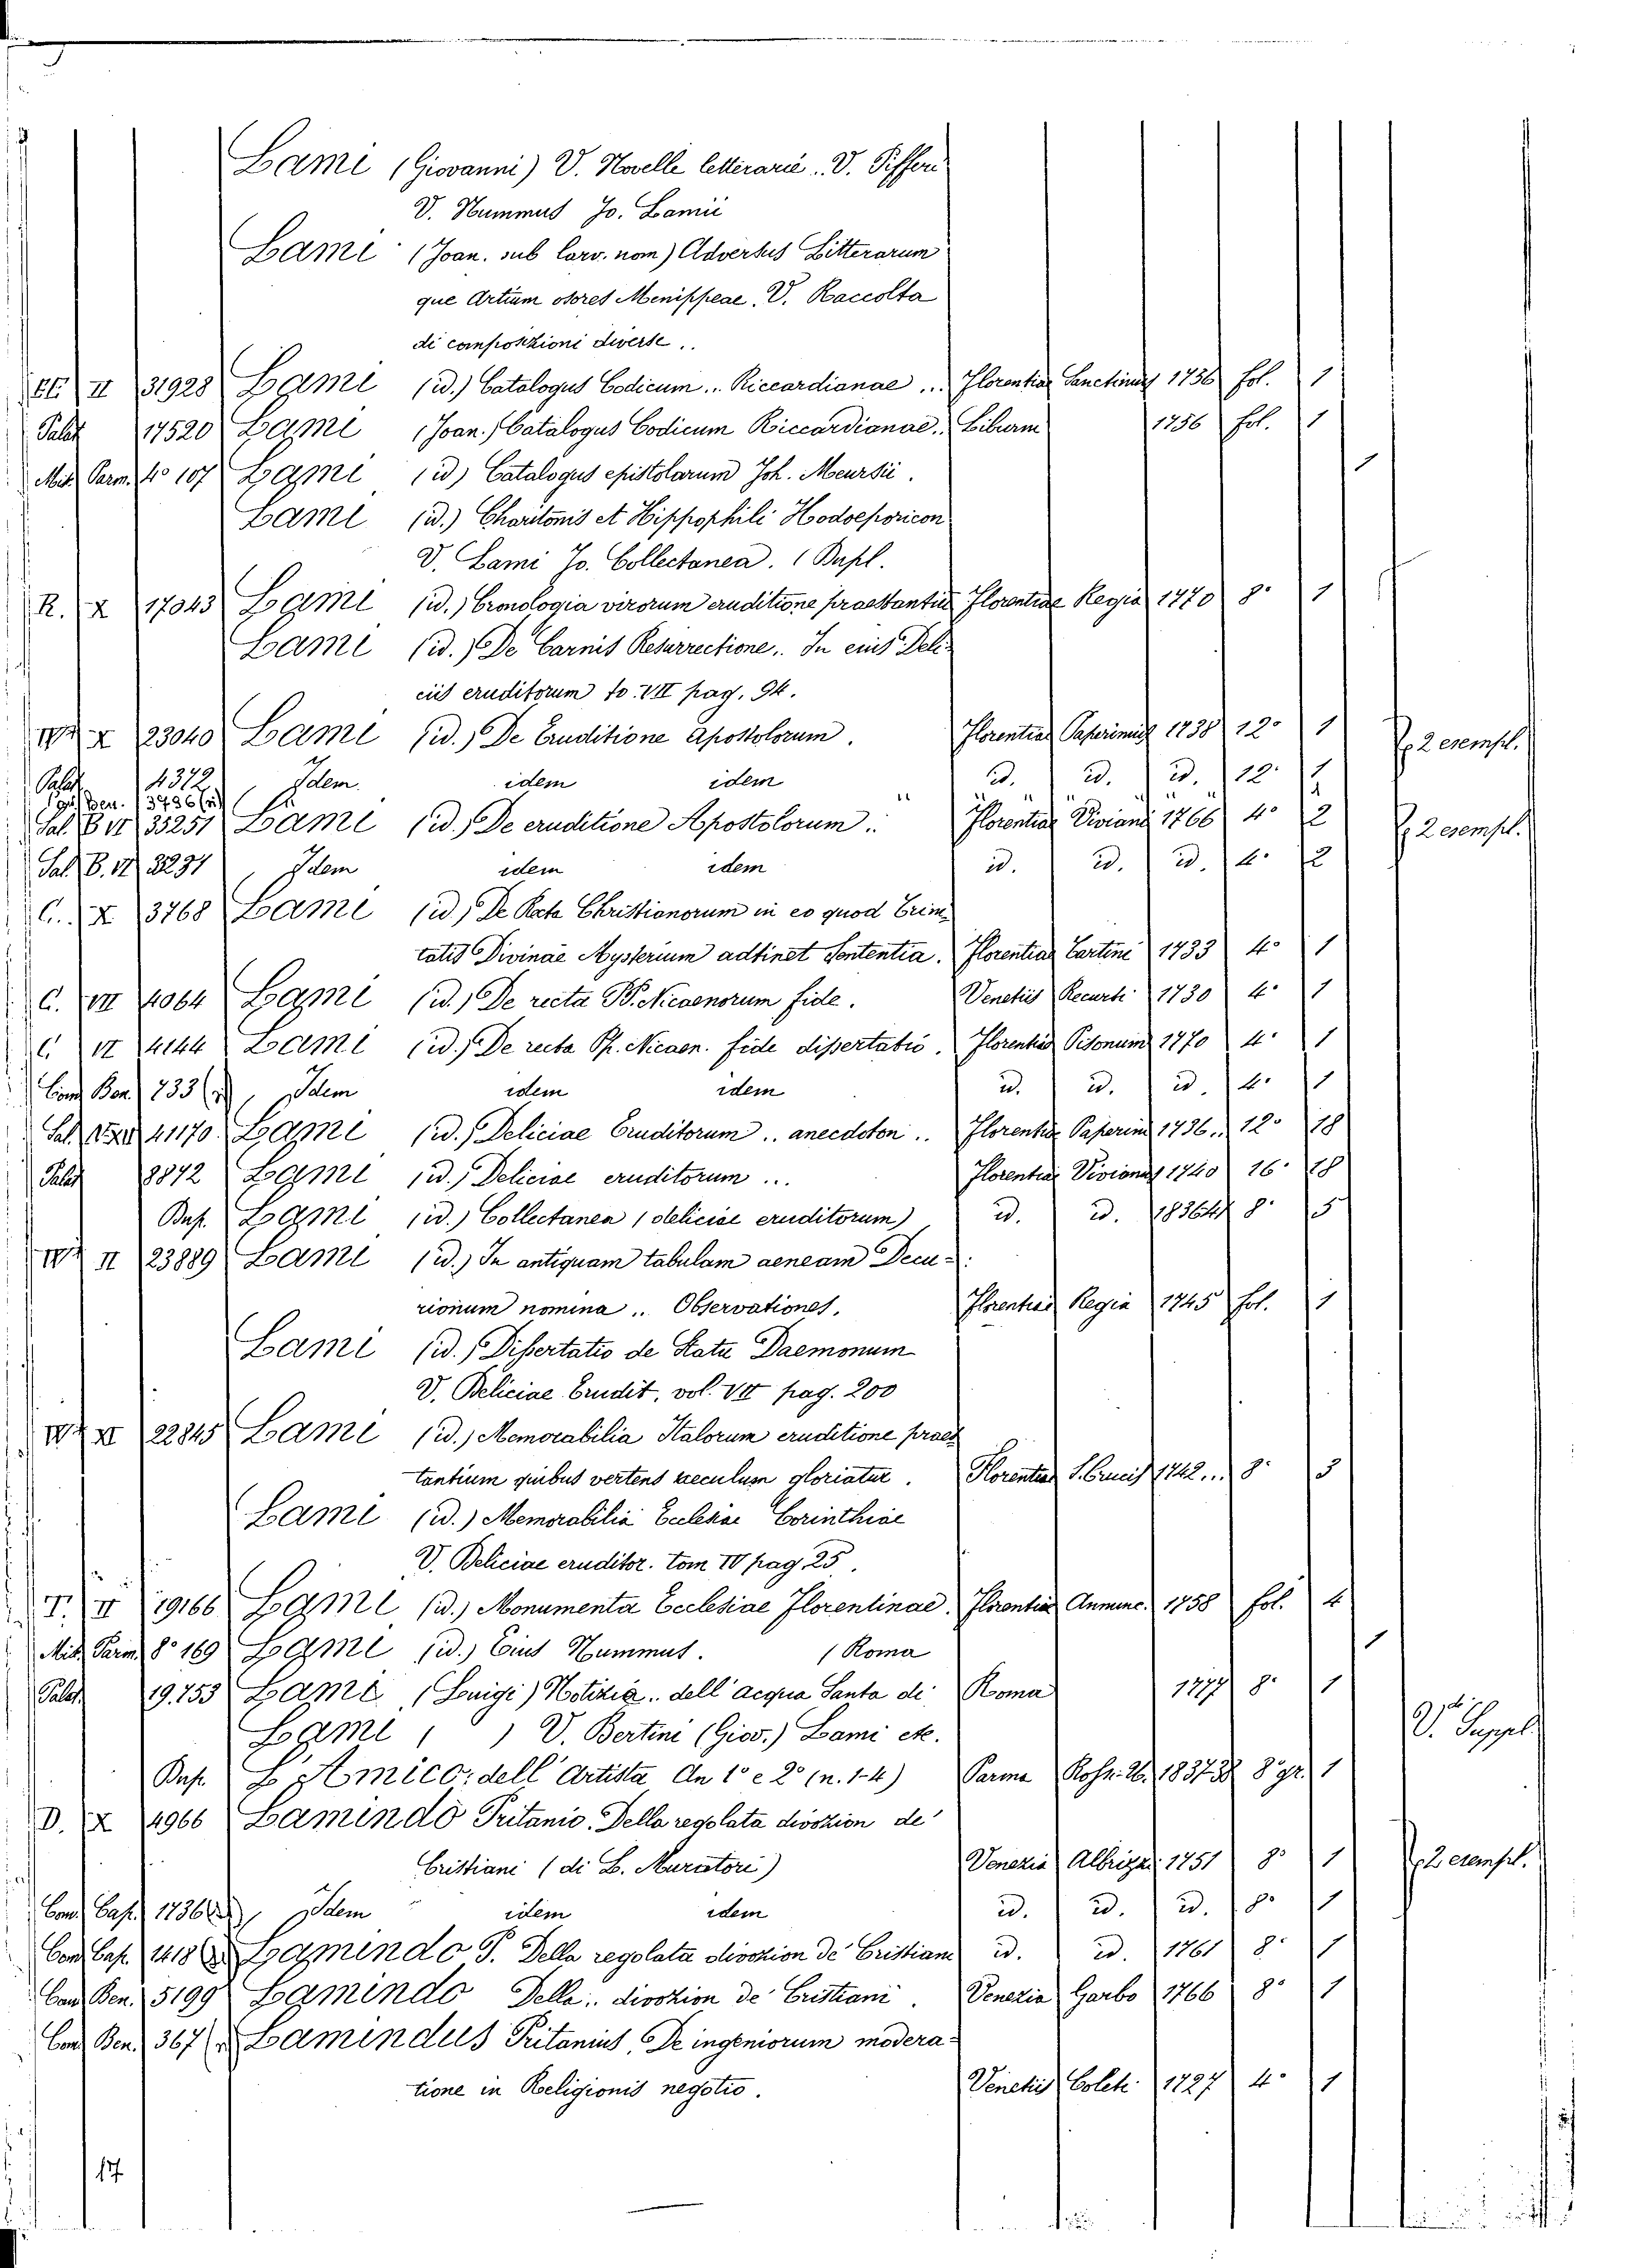 Lami (Giovanni) V. Novelle letterarie. V. Pifferi
V. Nummus Jo. Lamii
Lami (Joan. sub larv. nom) Adversus Litterarum
que Artium osores Menippeae, V. Raccolta
di composizioni diverse..
II 31928 Lami (id.) Catalogus Codicum... Riccardianae... Florentiae 1756 fol. 1
Palat 17520 Lami (Joan.) Catalogus Codicum Riccardianae.. Liburni 1756 fol. 1
Mis. Parm. 4º 107 Lami (id) Catalogus epistolarum Joh. Meursii. 1
Lami (id.) Charitonis et Hippophili Hodoeporicon
V. Lami Jo. Collectanea. (Dupl.
R. X 17043 Lami (id.) Cronologia virorum eruditione praestantiu Florentiae Regia 1770 8º 1
Lami (id.) De Carnis Resurrectione.. In eius Deli-
ciis eruditorum to. VII pag. 94.
IV X 23040 Lami (id.) De Eruditione Apostolorum. Florentiae Paperinius 1738 12º 1 2 esempl.
Palat 4372 Idem idem idem id. id. id. 12º 1
Ben. 3736
Sal. B. VI 35251 Lami (id.) De eruditione Apostolorum.. Florentiae Viviani 1766 4º 2 2 esempl.
Sal. B. VI Idem idem idem id. id. id. 4º 2
C. X 3768 Lami (id.) De Recta Christianorum in eo quod Trini
tatis Divinae Mysterium adtinet Sententia. Florentiae 1733 4º 1
C. VII 4064 Lami (id.) De recta PP. Nicaenorum fide. Venetiis Recurti 1730 4º 1
C. VI 4144 Lami (id.) De recta PP. Nicaen. fide dissertatio. Florentiae Pisonum 1770 4º 1
Con. Ben. 733 Idem idem idem id. id. id. 4º 1
Sal. 41170 Lami (id.) Deliciae Eruditorum.. anecdoton.. Florentiae Paperini 1736.. 12º 18
Palat 8872 Lami (id.) Deliciae eruditorum... Florentiae Vivianus 1740 16º 18
Dup. Lami (id.) Collectanea (deliciae eruditorum) id. id. 8º 5
IV II 23889 Lami (id.) In antiquam tabulam aeneam Decu-
rionum nomina.. Observationes. Florentiae Regia 1745 fol. 1
Lami (id.) Dissertatio de Statu Daemonum
V. Deliciae Erudit. vol. VII pag. 200
IV XI 22845 Lami (id.) Memorabilia Italorum eruditione praes
tantium quibus vertens saeculum gloriatur. Florentiae S. Crucis 1742... 8º 3
Lami (id.) Memorabilia Ecclesiae Corinthiae
V. Deliciae eruditor. tom IV pag 25.
T. II 19166 Lami (id.) Monumenta Ecclesiae Florentinae. Florentiae Annunc. 1758 fol. 4
Mis. Parm. 8º 169 Lami (id.) Eius Nummus. (Roma 1
Palat. 19.753 Lami (Luigi) Notizia.. dell'acqua Santa di Roma 1777 8º 1
Lami ( ) V. Bertini (Giov.) Lami etc. V. Suppel
Dup. L'Amico: dell'Artista An 1º e 2º (n. 1-4) Parma 1837 8º gr. 1
D. X 4966 Lamindo Pritanio. Della regolata divozion de'
Cristiani (di L. Muratori) Venezia Albrizzi 1751 8º 1 2 esempl.
Con. Cap. 1736 Idem idem idem id. id. id. 8º 1
Con. Cap. 1418 Lamindo P. Della regolata divozion de' Cristiani id. id. 1761 8º 1
Con. Ben. 5199 Lamindo Della.. divozion de' Cristiani. Venezia Garbo 1766 8º 1
Con. Ben. 367 Lamindus Pritanius. De ingeniorum modera-
tione in Religionis negotio. Venetiis Coleti 1727 4º 1
17